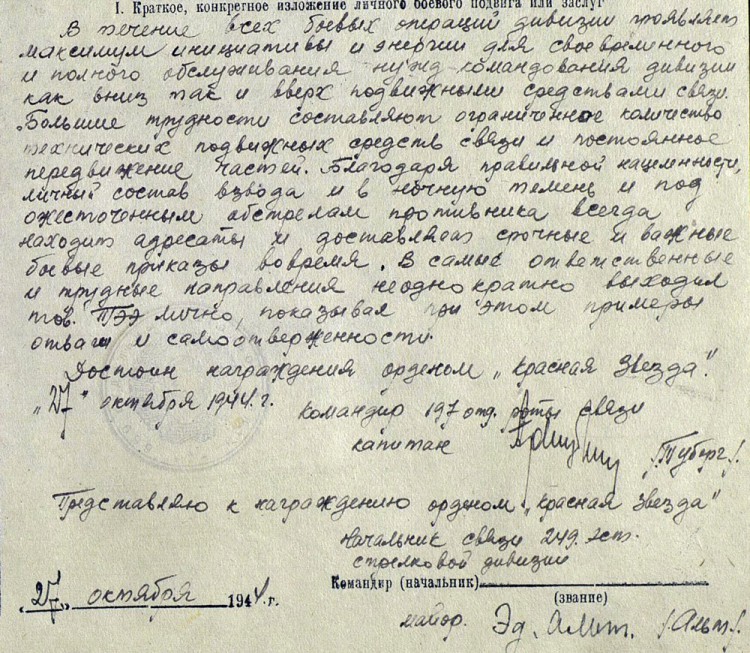 I. Краткое, конкретное изложение личного боевого подвига или заслуг
В течение всех боевых операций дивизии проявляет
максимум инициативы и энергии для своевременного
и полного обслуживания нужд командования дивизии
как вниз так и вверх подвижными средствами связи.
Большие трудности составляют ограниченное количество
технических подвижных средств связи и постоянное
передвижение частей. Благодаря правильной нацеленности,
личный состав взвода и в ночную темень и под
ожесточенным обстрелам противника всегда
находит адресаты и доставляет срочные и важные
боевые приказы вовремя. В самые ответственные
и трудные направления неоднократно выходил
тов. ПЭЭ лично, показывая при этом примеры
отваги и самоотверженности.
Достоин награждения орденом „Красная Звезда".
„27" октября 1944 г. Командир 197 отд. роты связи
капитан /Туберг/.
Представляю к награждению орденом „Красная Звезда"
Начальник связи 249. эст.
стрелковой дивизии
„27" октября 1944 г. Командир (начальник)
(звание)
майор. Эд. Альт. /Альт/.